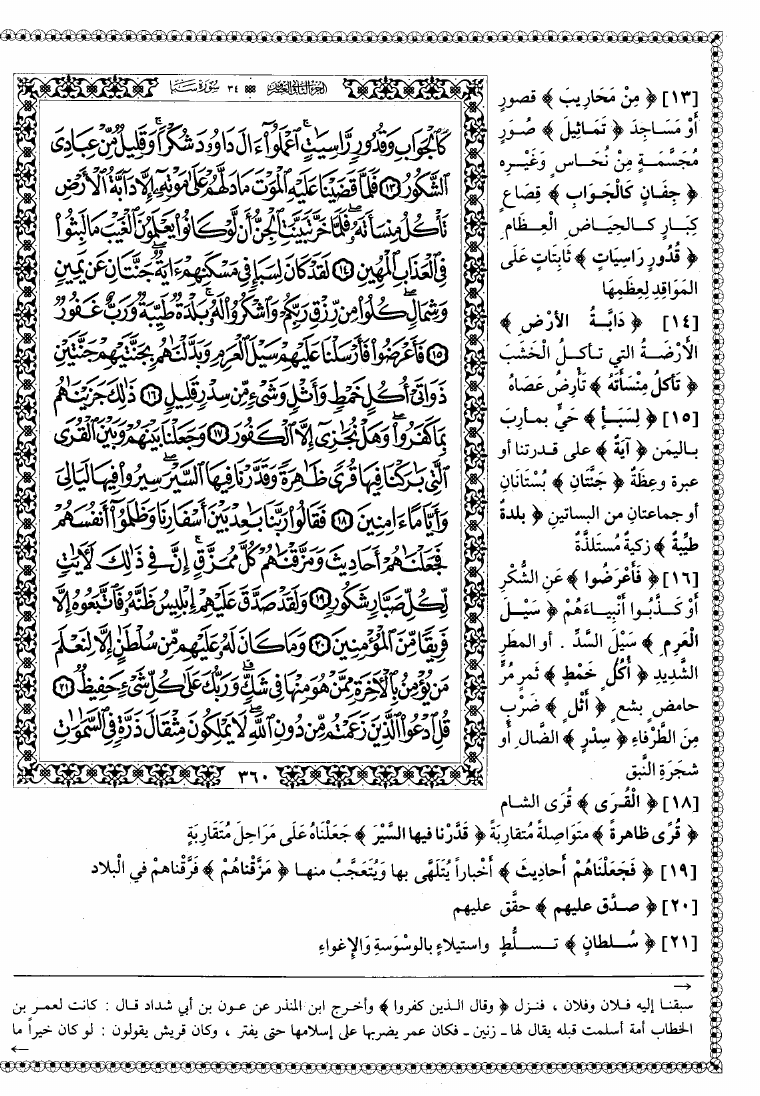 الجزء الثاني والعشرون ٣٤ سورة سبأ
كَٱلْجَوَابِ وَقُدُورٍ رَّاسِيَٰتٍ ٱعْمَلُوٓا۟ ءَالَ دَاوُۥدَ شُكْرًا وَقَلِيلٌ مِّنْ عِبَادِىَ
ٱلشَّكُورُ ١٣ فَلَمَّا قَضَيْنَا عَلَيْهِ ٱلْمَوْتَ مَا دَلَّهُمْ عَلَىٰ مَوْتِهِۦٓ إِلَّا دَآبَّةُ ٱلْأَرْضِ
تَأْكُلُ مِنسَأَتَهُۥ فَلَمَّا خَرَّ تَبَيَّنَتِ ٱلْجِنُّ أَن لَّوْ كَانُوا۟ يَعْلَمُونَ ٱلْغَيْبَ مَا لَبِثُوا۟
فِى ٱلْعَذَابِ ٱلْمُهِينِ ١٤ لَقَدْ كَانَ لِسَبَإٍ فِى مَسْكَنِهِمْ ءَايَةٌ جَنَّتَانِ عَن يَمِينٍ
وَشِمَالٍ كُلُوا۟ مِن رِّزْقِ رَبِّكُمْ وَٱشْكُرُوا۟ لَهُۥ بَلْدَةٌ طَيِّبَةٌ وَرَبٌّ غَفُورٌ
١٥ فَأَعْرَضُوا۟ فَأَرْسَلْنَا عَلَيْهِمْ سَيْلَ ٱلْعَرِمِ وَبَدَّلْنَٰهُم بِجَنَّتَيْهِمْ جَنَّتَيْنِ
ذَوَاتَىْ أُكُلٍ خَمْطٍ وَأَثْلٍ وَشَىْءٍ مِّن سِدْرٍ قَلِيلٍ ١٦ ذَٰلِكَ جَزَيْنَٰهُم
بِمَا كَفَرُوا۟ وَهَلْ نُجَٰزِىٓ إِلَّا ٱلْكَفُورَ ١٧ وَجَعَلْنَا بَيْنَهُمْ وَبَيْنَ ٱلْقُرَى
ٱلَّتِى بَٰرَكْنَا فِيهَا قُرًى ظَٰهِرَةً وَقَدَّرْنَا فِيهَا ٱلسَّيْرَ سِيرُوا۟ فِيهَا لَيَالِىَ
وَأَيَّامًا ءَامِنِينَ ١٨ فَقَالُوا۟ رَبَّنَا بَٰعِدْ بَيْنَ أَسْفَارِنَا وَظَلَمُوٓا۟ أَنفُسَهُمْ
فَجَعَلْنَٰهُمْ أَحَادِيثَ وَمَزَّقْنَٰهُمْ كُلَّ مُمَزَّقٍ إِنَّ فِى ذَٰلِكَ لَءَايَٰتٍ
لِّكُلِّ صَبَّارٍ شَكُورٍ ١٩ وَلَقَدْ صَدَّقَ عَلَيْهِمْ إِبْلِيسُ ظَنَّهُۥ فَٱتَّبَعُوهُ إِلَّا
فَرِيقًا مِّنَ ٱلْمُؤْمِنِينَ ٢٠ وَمَا كَانَ لَهُۥ عَلَيْهِم مِّن سُلْطَٰنٍ إِلَّا لِنَعْلَمَ
مَن يُؤْمِنُ بِٱلْءَاخِرَةِ مِمَّنْ هُوَ مِنْهَا فِى شَكٍّ وَرَبُّكَ عَلَىٰ كُلِّ شَىْءٍ حَفِيظٌ ٢١
قُلِ ٱدْعُوا۟ ٱلَّذِينَ زَعَمْتُم مِّن دُونِ ٱللَّهِ لَا يَمْلِكُونَ مِثْقَالَ ذَرَّةٍ فِى ٱلسَّمَٰوَٰتِ
٣٦٠
[١٣] ﴿ مِنْ مَحَاريبَ ﴾ قصورٍ
أوْ مَسَاجِدَ ﴿ تَمَاثِيلَ ﴾ صُوَرٍ
مُجَسَّمَةٍ مِنْ نُحَاس وَغَيْرِه
﴿ جِفَانٍ كَالْجَوَابِ ﴾ قِصَاعٍ
كِبَارٍ كالحِيَاضِ الْعِظَام
﴿ قُدُورٍ رَاسِيَاتٍ ﴾ ثَابِتَاتٍ عَلَى
المَوَاقِدِ لِعِظَمِهَا
[١٤] ﴿ دَابَّةُ الأرْضِ ﴾
الأرَضَةُ التي تأكلُ الْخَشَبَ
﴿ تَأكُلُ مِنْسَأتَهُ ﴾ تَأْرِضُ عَصَاهُ
[١٥] ﴿ لِسَبَأٍ ﴾ حَيٍّ بمأرِبَ
باليمَن ﴿ آيَةٌ ﴾ على قدرتنا أو
عبرة وعِظَةٌ ﴿ جَنَّتَانِ ﴾ بُسْتَانَانِ
أو جماعتان من البساتين ﴿ بلدةٌ
طيِّبةٌ ﴾ زكيةٌ مُستَلذَّةٌ
[١٦] ﴿ فَأعْرَضُوا ﴾ عَنِ الشُّكْرِ
أوْ كَذَّبُوا أَنْبِيَاءَهُمْ ﴿ سَيْلَ
الْعَرِمِ ﴾ سَيْلَ السَّدِّ . أو المطَرِ
الشَّدِيدِ ﴿ أُكُلٍ خَمْطٍ ﴾ ثَمَرٍ مُرٍّ
حامضٍ بشعٍ ﴿ أثْلٍ ﴾ ضَرْبٍ
مِنَ الطَّرْفَاءِ ﴿ سِدْرٍ ﴾ الضَّالِ أو
شجَرَةِ النَّبق
[١٨] ﴿ الْقُرَى ﴾ قُرَى الشام
﴿ قُرًى ظاهرةً ﴾ متَوَاصلةً مُتقاربَةً ﴿ قَدَّرْنا فيها السَّيْرَ ﴾ جَعَلْنَاهُ عَلَى مَرَاحِلَ مُتَقَاربَةٍ
[١٩] ﴿ فَجَعَلْنَاهُمْ أحاديثَ ﴾ أخْباراً يُتَلَهَّى بها وَيُتعَجَّبُ منهـا ﴿ مَزَّقْناهُمْ ﴾ فَرَّقْناهمْ في الْبلاد
[٢٠] ﴿ صدَّق عليهم ﴾ حقَّق عليهم
[٢١] ﴿ سُلطانٍ ﴾ تسلُّطٍ واستيلاءٍ بالوسْوَسةِ وَالإغواءِ
سبقنـا إليه فـلان وفلان ، فنـزل ﴿ وقال الـذين كفروا ﴾ وأخـرج ابن المنذر عن عـون بن أبي شداد قـال : كانت لعمـر بن
الخطاب أمة أسلمت قبله يقال لهـا ـ زنين ـ فكان عمر يضربهـا على إسلامها حتى يفتر ، وكان قريش يقولون : لو كان خيراً ما